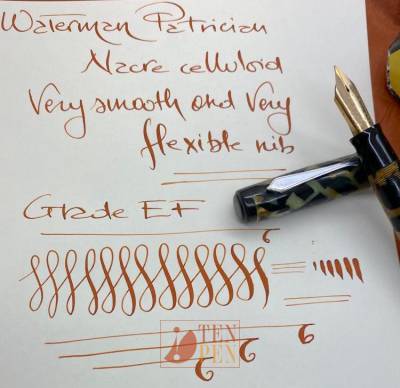 Waterman Patrician
Nacre celluloid
Very smooth and Very
flexible nib
Grade EF
TEN
PEN